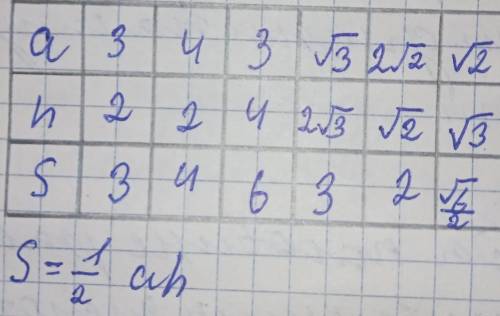 a 3 4 3 √3 2√2 √2
h 2 2 4 2√3 √2 √3
S 3 4 6 3 2 √6/2
S = 1/2 ah